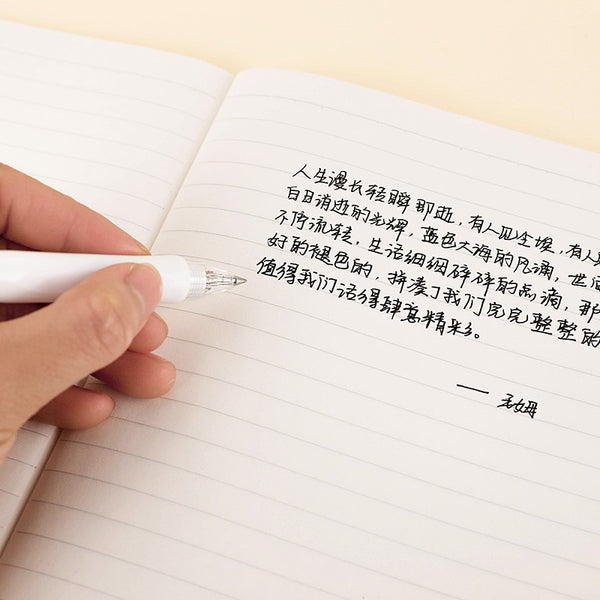 人生漫长轻瞬即逝，有人见尘埃，有人
白日消逝的光辉，蓝色大海的风滴，世
不停流转，生活细细碎碎的点滴，那
好的褪色的，拼凑了我们完完整整的
值得我们活得肆意精彩。
—— 孟姆